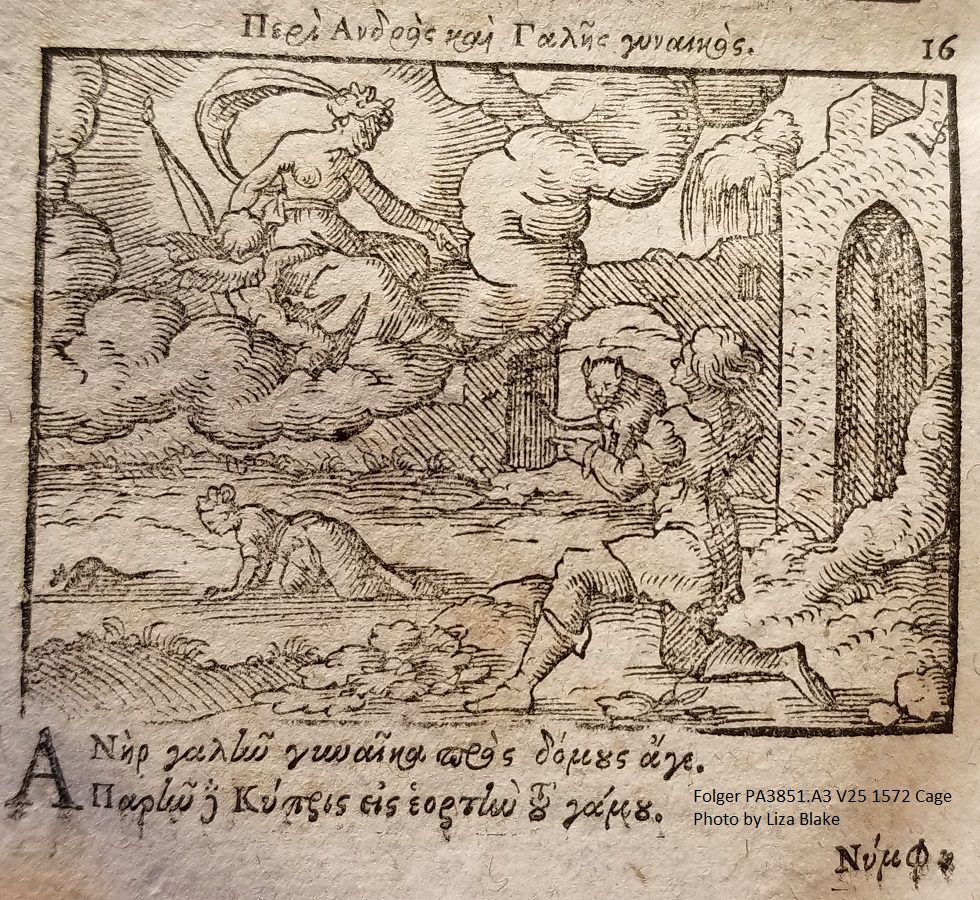 Περὶ Ανδρὸς καὶ Γαλῆς γυναικὸς.
16
ΑΝὴρ γαλῆν γυναῖκα πρὸς δόμους ἄγε.
Παρῆν δὲ Κύπρις εἰς ἑορτὴν τοῦ γάμου.
Folger PA3851.A3 V25 1572 Cage
Photo by Liza Blake